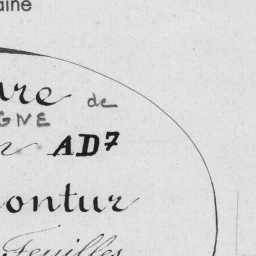 aine
ure de
GNE
r AD7
ontur
Feuilles